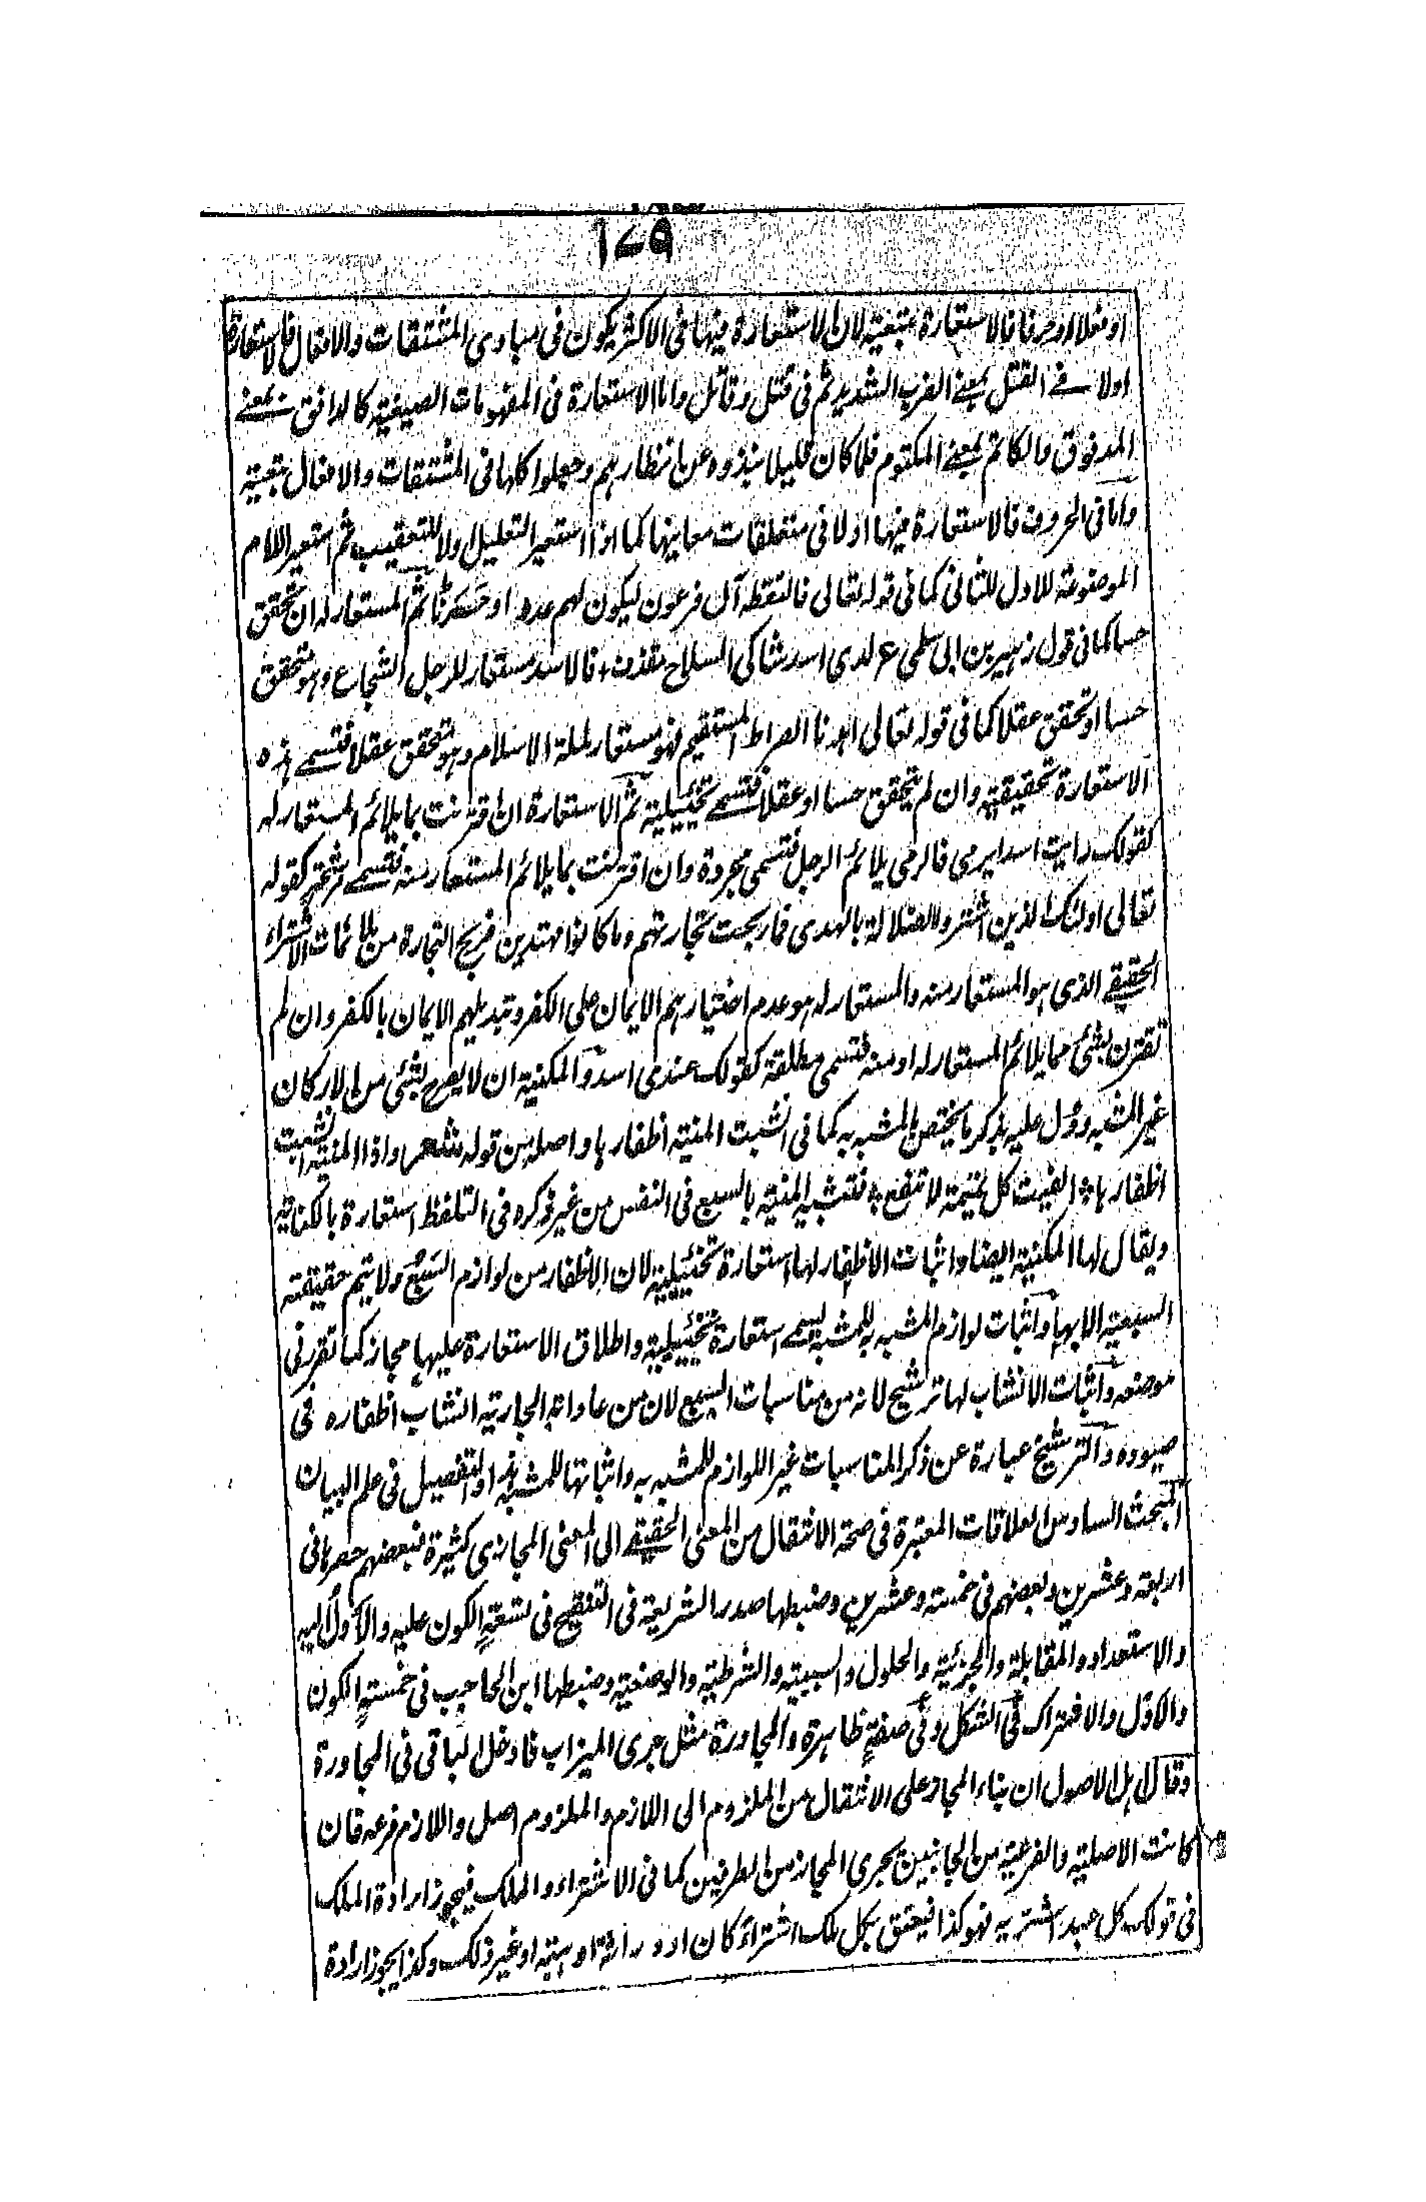 ١٧٩
او فعلا او حرفا فالاستعارة تبعية لان الاستعارة فيها فى الاكثر يكون فى مبادى المشتقات والافعال فالاستعارة
اولا فى القتل بمعنى الضرب الشديد ثم فى قتل وقاتل واما الاستعارة فى المفهومات الصيغية كالدافق بمعنى
المدفوق والكاتم بمعنى المكتوم فلما كان قليلا نبذوه عن انظارهم وجعلوا كلها فى المشتقات والافعال تبعية
واما فى الحروف فالاستعارة فيها اولا فى متعلقات معانيها كما اذا استعير التعليل اولا للتعقيب ثم استعير اللام
الموضوعة للاول للثانى كما فى قوله تعالى فالتقطه آل فرعون ليكون لهم عدوا وحَسَرَنًا ثم المستعار له ان تحقق
حسا كما فى قول زهير بن ابى سلمى ع لدى اسد شاكى السلاح مقذف + فالاسد مستعار للرجل الشجاع وهو متحقق
حسا او تحقق عقلا كما فى قوله تعالى اهدنا الصراط المستقيم فهو مستعار لملة الاسلام وهو متحقق عقلا فتسمى هذه
الاستعارة تحقيقية وان لم يتحقق حسا او عقلا فتسمى تخييلية ثم الاستعارة ان اقترنت بما يلائم المستعار له
كقولك رايت اسدا يرمى فالرمى يلائم الرجل فتسمى مجردة وان اقترنت بما يلائم المستعار منه فتسمى مرشحة كقوله
تعالى اولئك الذين اشتروا الضلالة بالهدى فما ربحت تجارتهم وما كانوا مهتدين فربح التجارة من ملائمات الاشتراء
الحقيقى الذى هو المستعار منه والمستعار له هو عدم اختيارهم الايمان على الكفر وتبديلهم الايمان بالكفر وان لم
تقترن بشئ مما يلائم المستعار له او منه فتسمى مطلقة كقولك عندى اسد والمكنية ان لا يصرح بشئ من الاركان
غير المشبه ودُل عليه بذكر ما يختص بالمشبه به كما فى انشبت المنية اظفارها واصله من قوله شعر واذا المنية انشبت
اظفارها ؛ الفيت كل تميمة لا تنفع ؛ فتشبيه المنية بالسبع فى النفس من غير ذكره فى التلفظ استعارة بالكناية
ويقال لها المكنية ايضا واثبات الاظفار لها استعارة تخييلية لان الاظفار من لوازم السَّبُع ولا يتم حقيقته
السبعية الا بها واثبات لوازم المشبه به للمشبه يسمى استعارة تخييلية واطلاق الاستعارة عليها مجاز كما تقرر فى
موضعه واثبات الانشاب لها ترشيح لانه من مناسبات السبع لان من عاداته الجارية انشاب اظفاره فى
صيوده والترشيح عبارة عن ذكر المناسبات غير اللوازم للمشبه به واثباتها للمشبه هذا والتفصيل فى علم البيان
المبحث السادس العلاقات المعتبرة فى صحة الانتقال من المعنى الحقيقى الى المعنى المجازى كثيرة فبعضهم حصرها فى
اربعة وعشرين وبعضهم فى خمسة وعشرين وضبطها صدر الشريعة فى التنقيح فى تسعة الكون عليه والاَوْل اليه
والاستعداد والمقابلة والجزئية والحلول والسببية والشرطية والوصفية وضبطها ابن الحاجب فى خمسة الكون
والاَوْل والاشتراك فى الشكل وفى صفة ظاهرة والمجاورة مثل جرى الميزاب فادخل الباقى فى المجاورة
وقال اهل الاصول ان بناء المجاز على الانتقال من الملزوم الى اللازم والملزوم اصل واللازم فرعه فان
كانت الاصلية والفرعية من الجانبين يجرى المجاز من الطرفين كما فى الاشتراء والملك فيجوز ارادة الملك
فى قولك كل عبد اشتريه فهو كذا فيعتق بكل ملك اشتراءً كان او وراثة او هبة او غير ذلك وكذا يجوز ارادة